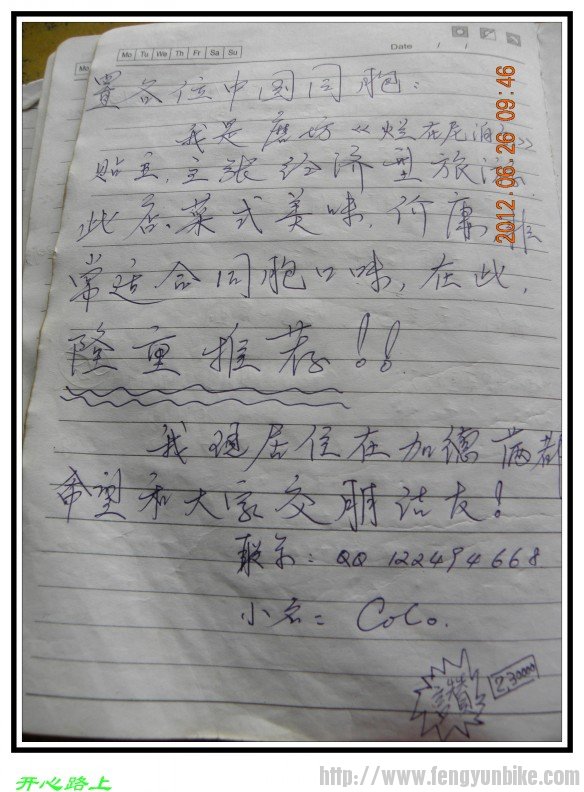 Mo Tu We Th Fr Sa Su
Date / /
各位中国同胞:
我是磨坊《烂在尼泊尔》
贴主,主张经济型旅游.
此店、菜式美味,价廉,非
常适合同胞口味,在此,
隆重推荐!!
我现居住在加德满都
希望和大家交朋结友!
联系: QQ 122494668
小名: CoCo.
2012.06.26 09:46
开心路上
http://www.fengyunbike.com